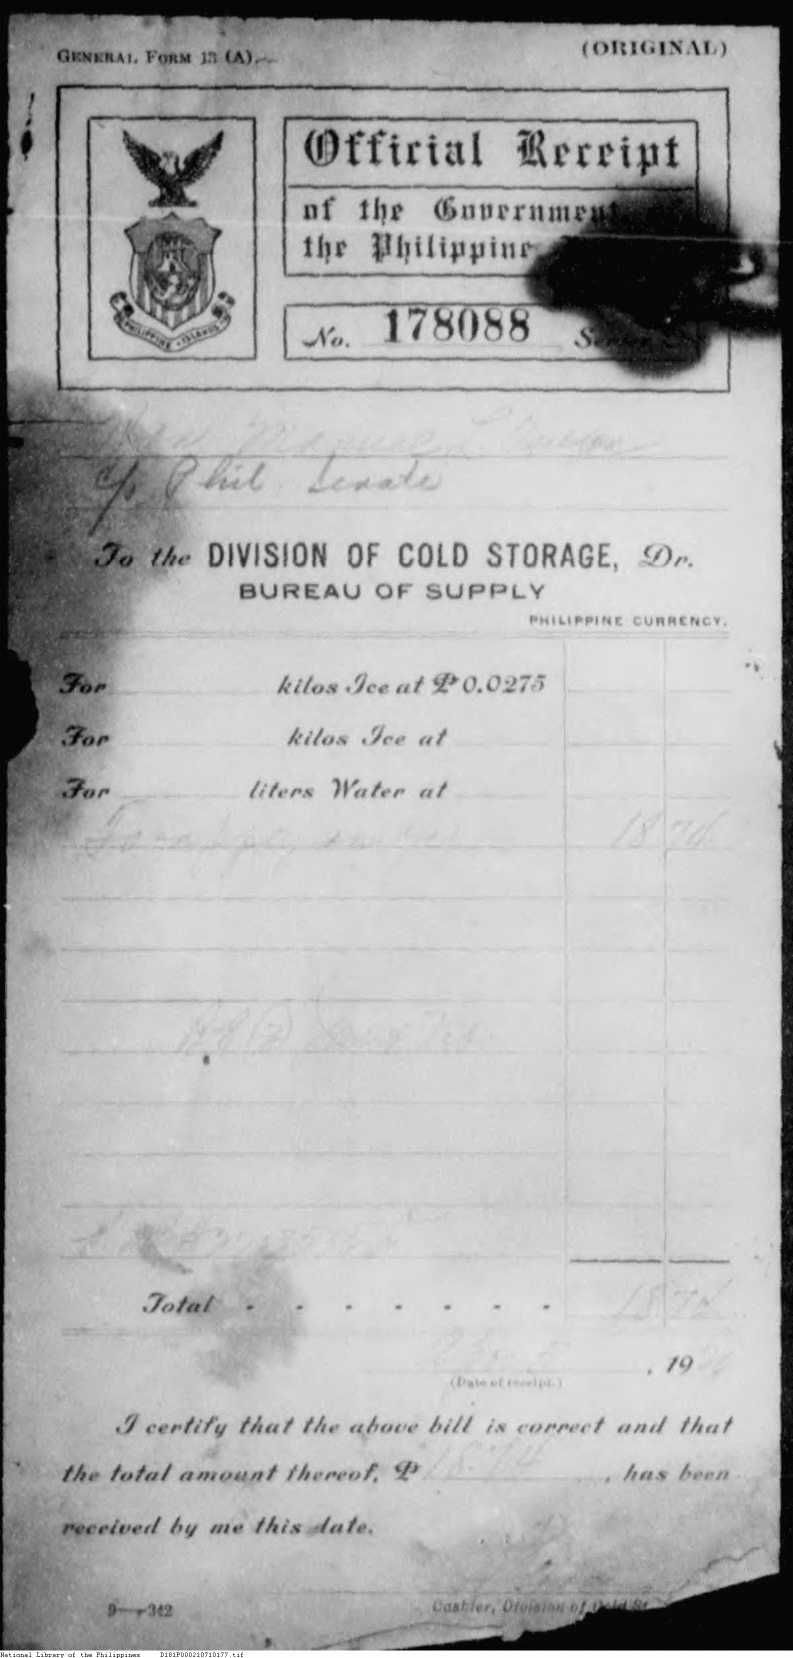 GENERAL FORM 13 (A).
(ORIGINAL)
Official Receipt
of the Government
the Philippine
PHILIPPINE ISLANDS
No. 178088
Manuel L. Quezon
c/o Phil. Senate
To the DIVISION OF COLD STORAGE, Dr.
BUREAU OF SUPPLY
PHILIPPINE CURRENCY.
For kilos Ice at ₱0.0275
For kilos Ice at
For liters Water at
18 74
Total - - - - - - - 18 74
, 19
(Date of receipt.)
I certify that the above bill is correct and that
the total amount thereof, ₱ 18.74, has been
received by me this date.
9—342
Cashier, Division of Cold St
National Library of the Philippines D181P000210710177.tif